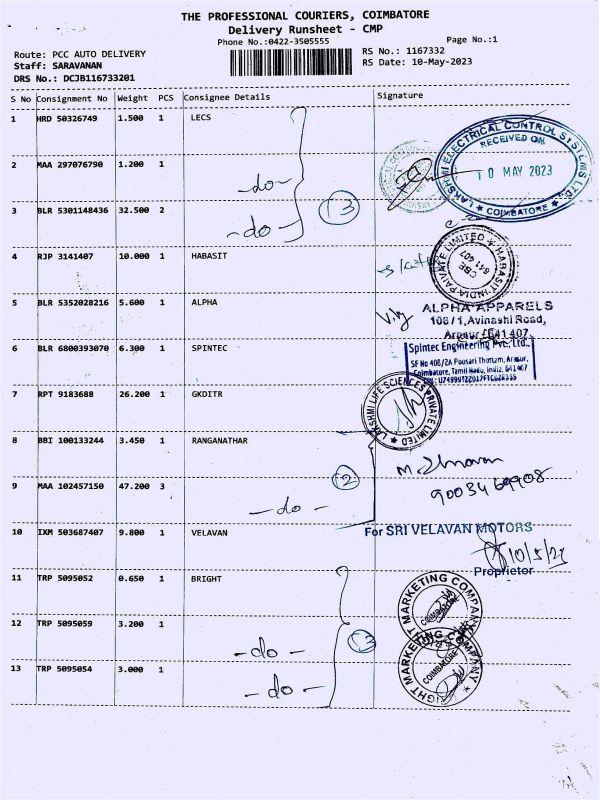 THE PROFESSIONAL COURIERS, COIMBATORE
Delivery Runsheet - CMP
Phone No.:0422-3505555
Page No.:1
Route: PCC AUTO DELIVERY
RS No.: 1167332
Staff: SARAVANAN
RS Date: 10-May-2023
DRS No.: DCJB116733201
S No Consignment No Weight PCS Consignee Details Signature
1 HRD 50326749 1.500 1 LECS
LAKSHMI ELECTRICAL CONTROL SYSTEMS LTD.
RECEIVED ON
10 MAY 2023
COIMBATORE
2 MAA 297076790 1.200 1
-do-
3 BLR 5301148436 32.500 2
-do-
3
4 RJP 3141407 10.000 1 HABASIT
HABASIT INDIA PRIVATE LIMITED
CBE
641 407
5 BLR 5352028216 5.600 1 ALPHA
ALPHA APPARELS
108/1, Avinashi Road,
Arasur-641 407.
6 BLR 6800393070 6.300 1 SPINTEC
Spintec Engineering Pvt. Ltd.,
SF No 408/2A Pousari Thottam, Arasur,
Coimbatore, Tamil Nadu, India, 641 407
7 RPT 9183688 26.200 1 GKDITR
LAKSHMI LIFE SCIENCES PRIVATE LIMITED
8 BBI 100133244 3.450 1 RANGANATHAR
9003469908
9 MAA 102457150 47.200 3
-do-
2
10 IXM 503687407 9.800 1 VELAVAN
For SRI VELAVAN MOTORS
10/5/23
Proprietor
11 TRP 5095052 0.650 1 BRIGHT
MARKETING COMPANY
COIMBATORE
12 TRP 5095059 3.200 1
-do-
3
13 TRP 5095054 3.000 1
-do-
BRIGHT MARKETING COMPANY
COIMBATORE